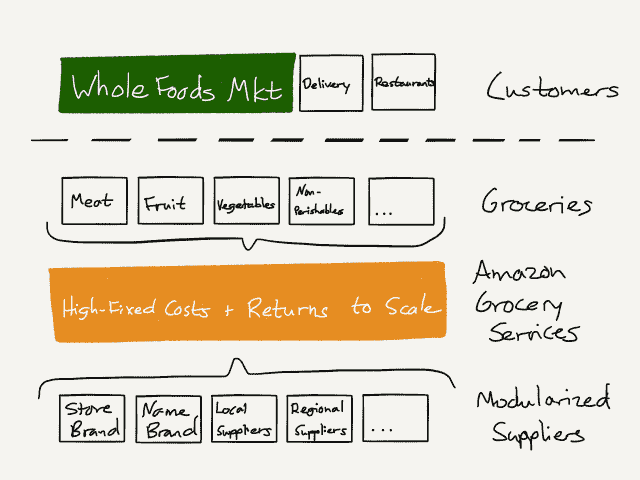 Whole Foods Mkt
Delivery
Restaurants
Customers
Meat
Fruit
Vegetables
Non-
Perishables
...
Groceries
High-Fixed Costs + Returns to Scale
Amazon
Grocery
Services
Store
Brand
Name
Brand
Local
Suppliers
Regional
Suppliers
...
Modularized
Suppliers